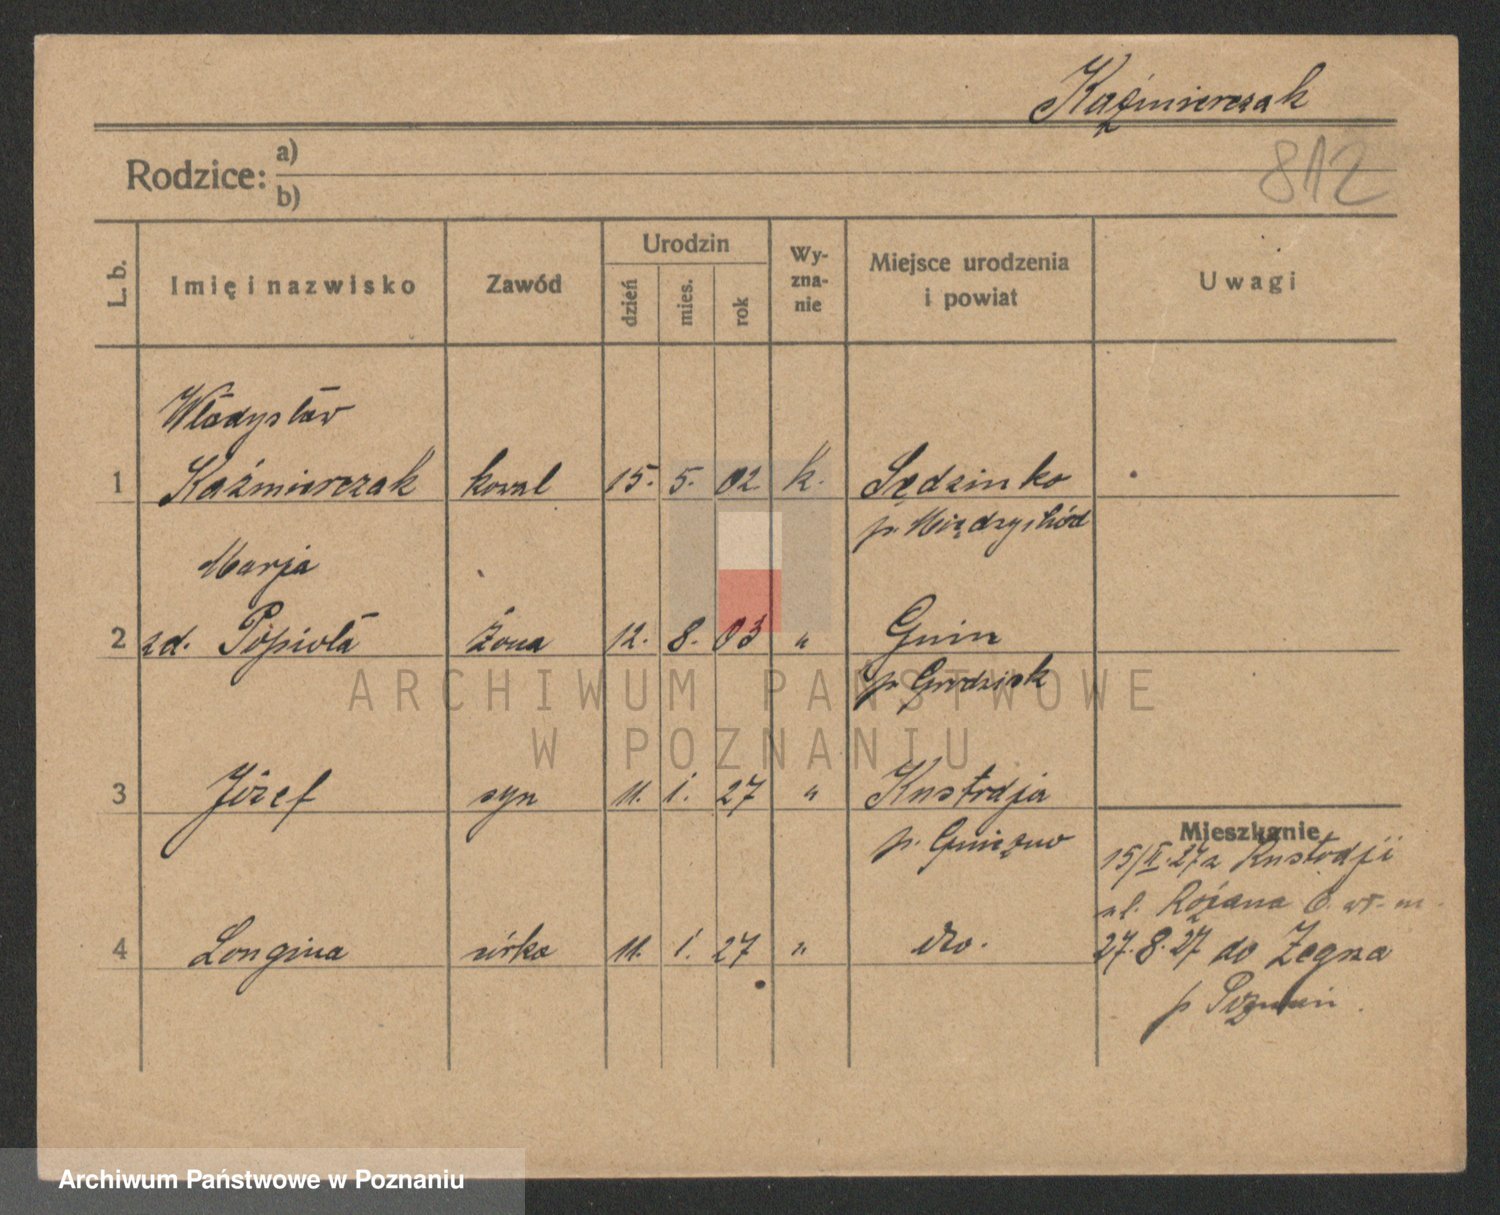 Kaźmierczak
812
Rodzice: a)
b)
L. b. Imię i nazwisko Zawód Urodzin dzień mies. rok Wy-zna-nie Miejsce urodzenia i powiat Uwagi
Władysław
1 Kaźmierczak kowal 15. 5. 02 k. Sędzinko
p. Międzychód
Marja
2 zd. Popioła Żona 12. 8. 03 " Gnin
p. Grodzisk
ARCHIWUM PAŃSTWOWE
W POZNANIU
3 Józef syn 11. 1. 27 " Kustodja
p. Gniezno
Mieszkanie
15/II.27 z Kustodji
ul. Różana 6.
4 Longina córka 11. 1. 27 " dto.
27.8.27 do Żegrza
p Poznań.
Archiwum Państwowe w Poznaniu